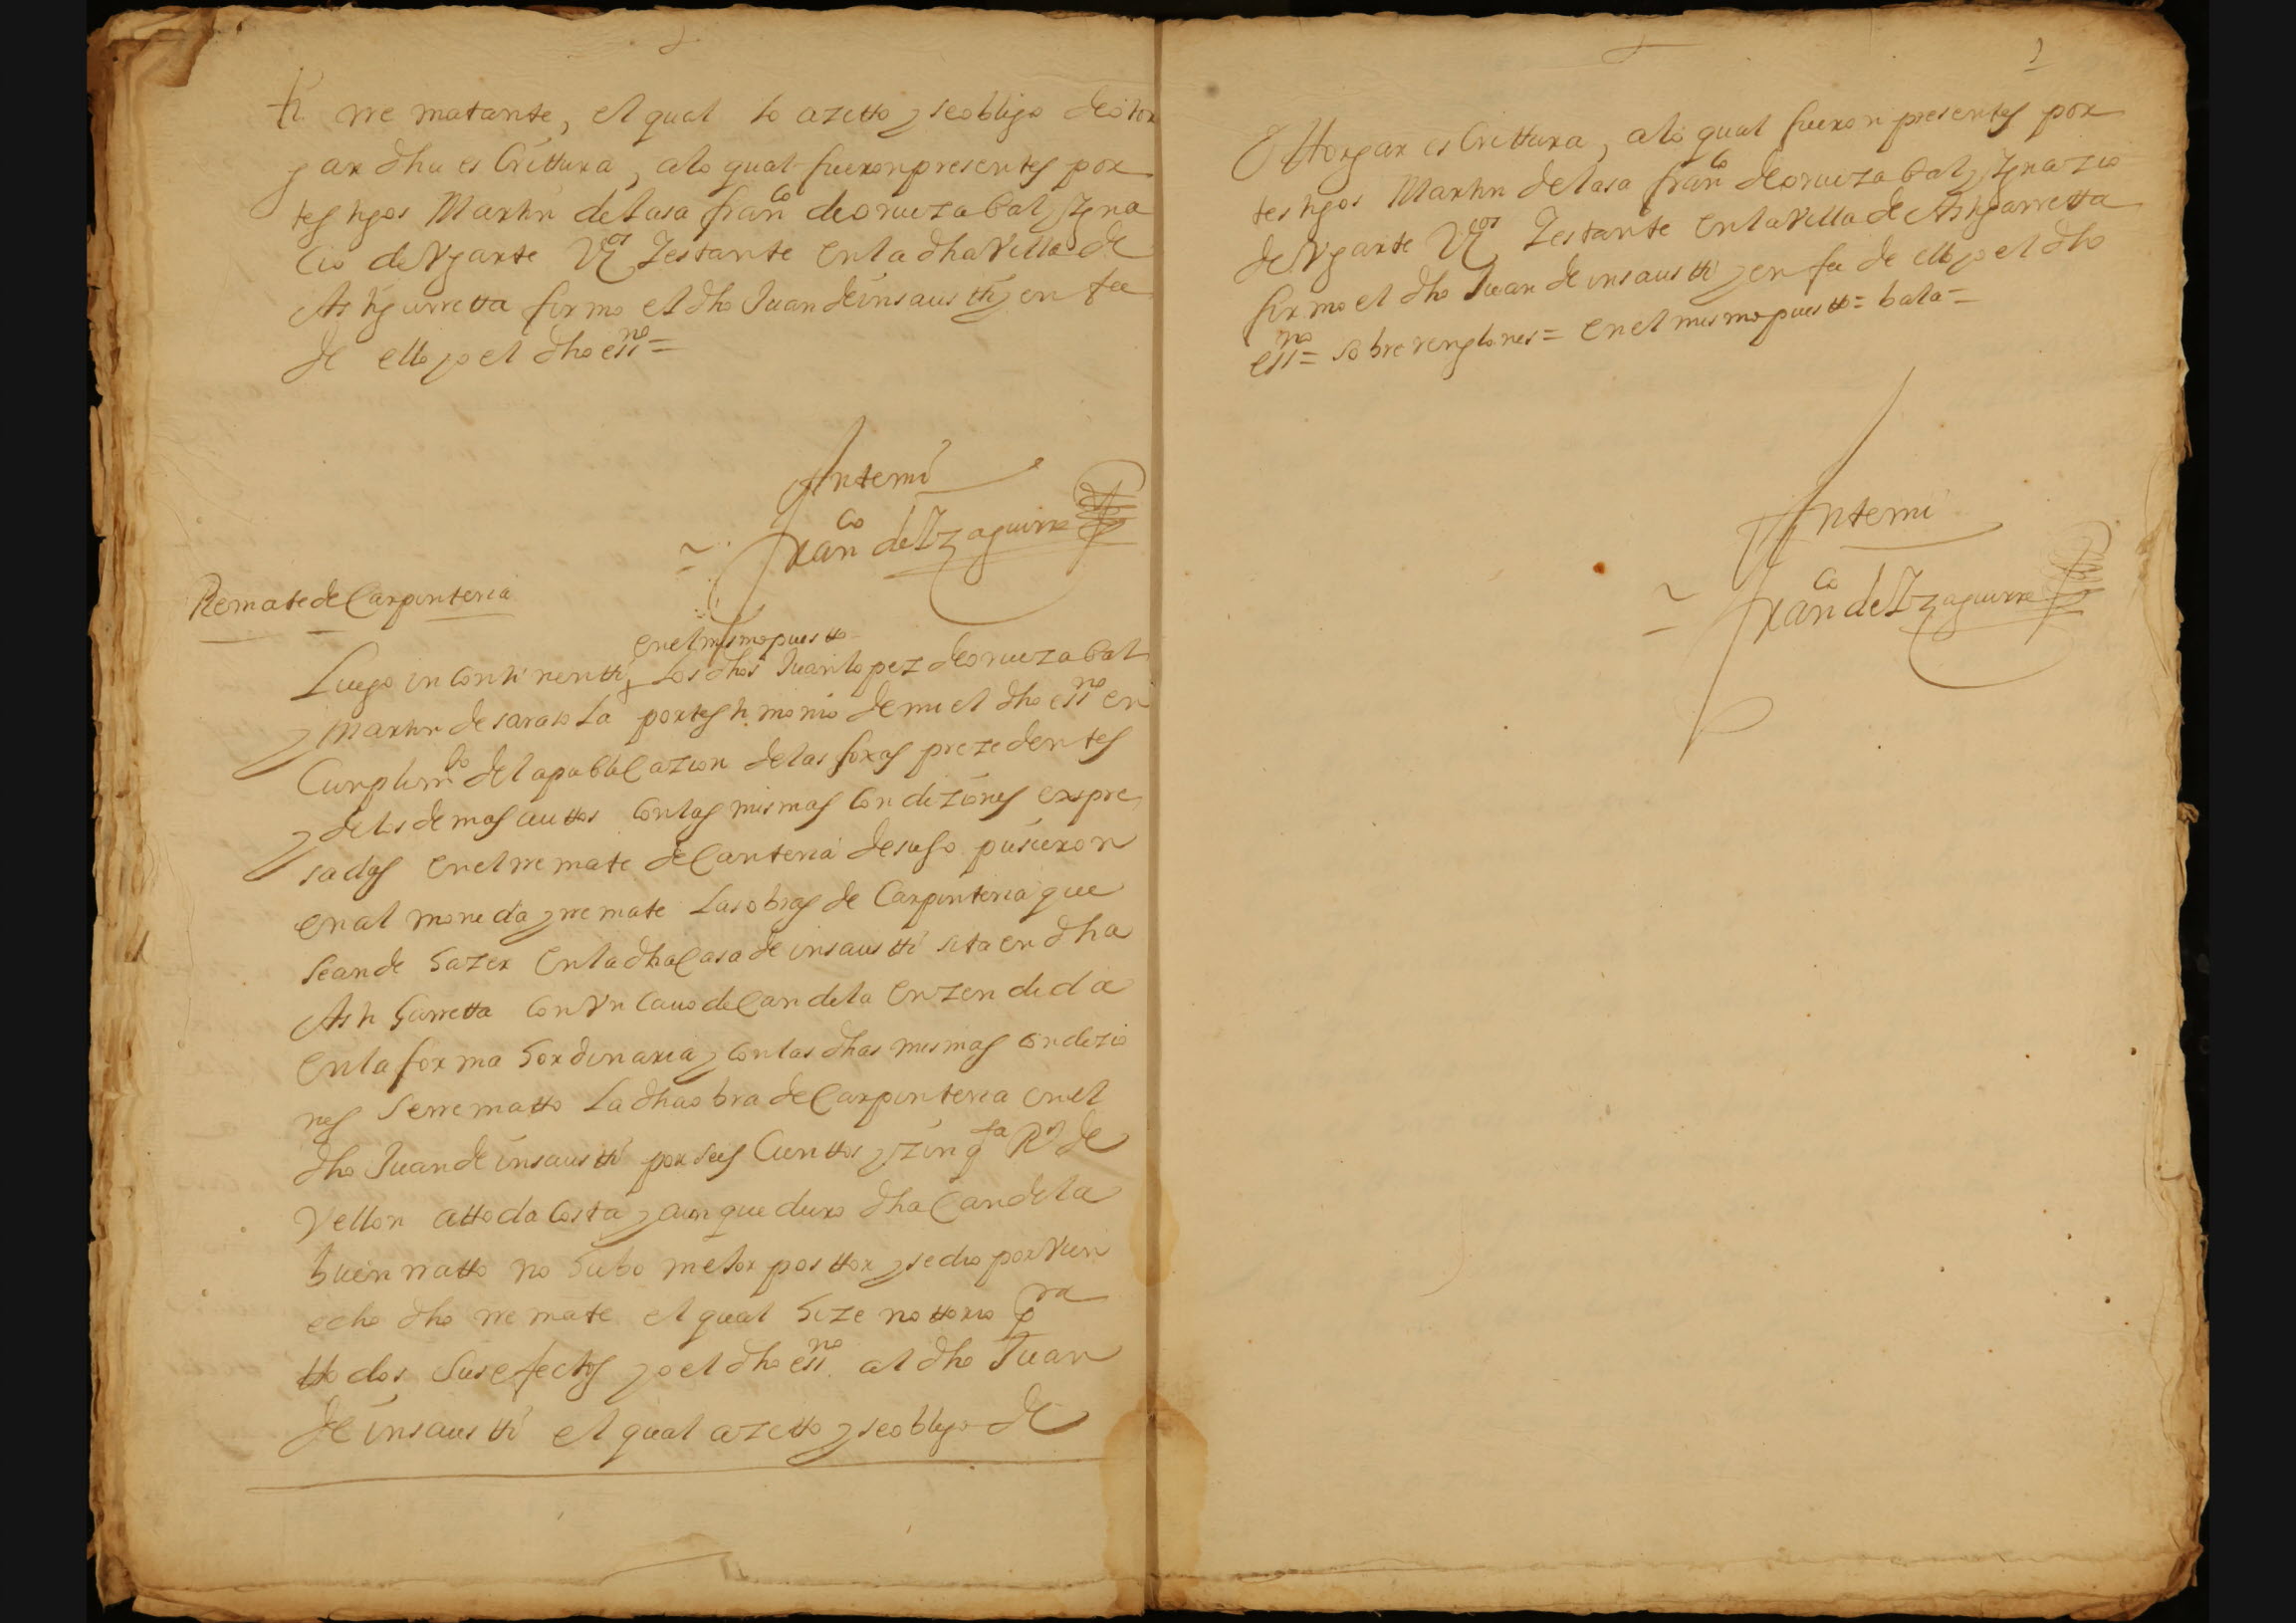 tti rrematante, el qual lo azetto y se obligo de otor
gar dha escrittura, a lo qual fueron presentes por
testigos Martin de lasa fran.co de oruezabal y Igna
cio de Ugarte Vz.os y estante en la dha Villa de
Astigarretta firmo el dho Juan de insausti y en fee
de ello yo el dho ess.no =
Ante mi
Fran.co de Yzaguirre
Remate de Carpinteria
en el mismo puestto
Luego in continentti los dhos Juan lopez de oruezabal
y Martin de sarasola por testimonio de mi el dho ess.no en
Cumplim.to de la publicazion de las foxas prezedentes
y de los demas auttos con las mismas Condiziones expre
sadas en el rremate de Canteria de suso pusieron
en al moneda y rremate las obras de Carpinteria que
se an de hazer en la dha Casa de insausti sita en dha
Astigarretta con Un Cauo de Candela enzendida
en la forma hordinaria y con las dhas mismas condizio
nes se rrematto la dha obra de Carpinteria en el
dho Juan de insausti por seis Cienttos y zinq.ta R.s de
Vellon a ttoda costa y aunque duro dha Candela
buen rratto no hubo mejor posttor y se dio por vien
echo dho rremate el qual hize nottorio p.ra
ttodos sus efectos yo el dho ess.no al dho Juan
de insausti el qual azetto y se obligo de
Ottorgar escrittura, a lo qual fueron presentes por
testigos Martin de lasa fran.co de oruezabal y Ignazio
de Ugarte Vz.os y estante en la Villa de Astigarretta
firmo el dho Juan de insausti y en fee de ello yo el dho
ess.no = sobre renglones = en el mismo puestto = bala =
Ante mi
Fran.co de Yzaguirre